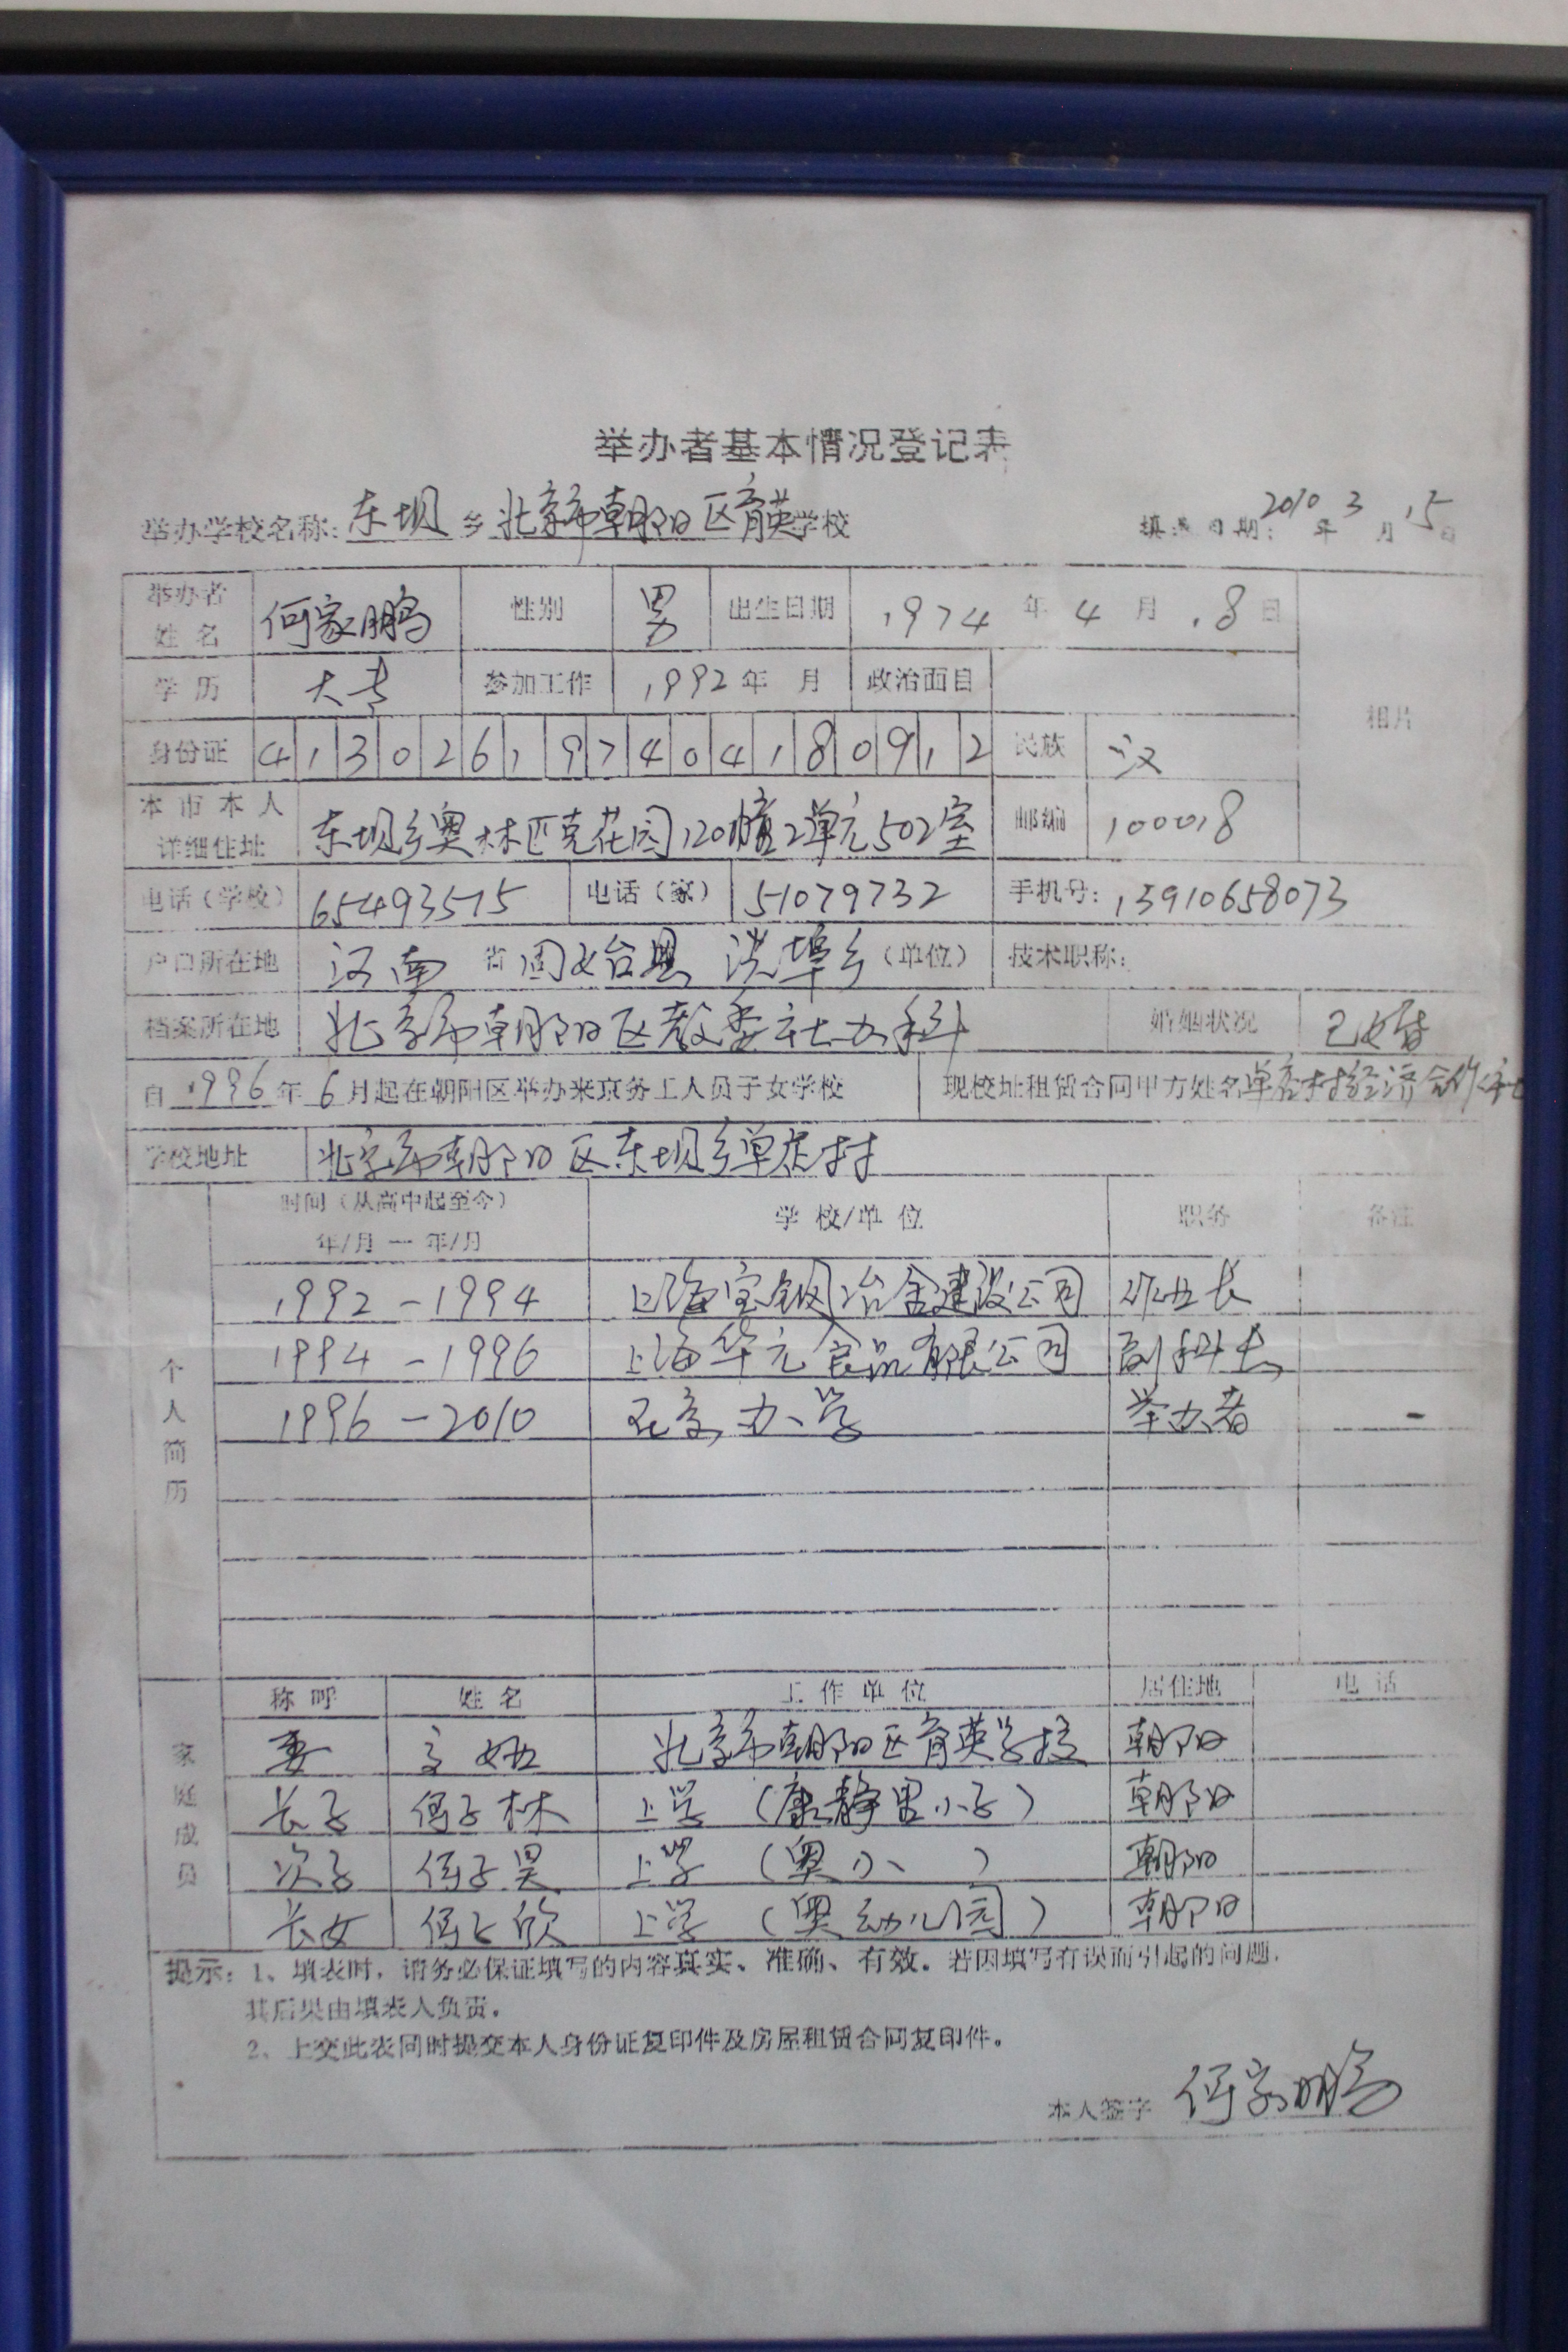 举办者基本情况登记表
举办学校名称: 东坝 乡 北京市朝阳区育英学校 填表日期: 2010年3月15日
举办者姓名 何家鹏 性别 男 出生日期 1974年4月18日 相片
学历 大专 参加工作 1992年 月 政治面目
身份证 413026197404180912 民族 汉
本市本人详细住址 东坝乡奥林匹克花园120幢2单元502室 邮编 100018
电话(学校) 65493515 电话(家) 51079732 手机号: 13910658073
户口所在地 河南 省 固始县 洪埠乡 (单位) 技术职称:
档案所在地 北京市朝阳区教委社办科 婚姻状况 已婚
自1996年6月起在朝阳区举办来京务工人员子女学校 现校址租赁合同甲方姓名单店村经济合作社
学校地址 北京市朝阳区东坝乡单店村
个人简历
时间(从高中起至今) 年/月一年/月 学校/单位 职务 备注
1992-1994 上海宝钢冶金建设公司 班长
1994-1996 上海华元食品有限公司 副科长
1996-2010 在京办学 举办者
家庭成员
称呼 姓名 工作单位 居住地 电话
妻 北京市朝阳区育英学校 朝阳
长子 何子林 上学 (康静里小学) 朝阳
次子 何子昊 上学 (奥小 ) 朝阳
长女 何 欣 上学 (奥幼儿园) 朝阳
提示: 1、填表时,请务必保证填写的内容真实、准确、有效。若因填写有误而引起的问题,
其后果由填表人负责。
2、上交此表同时提交本人身份证复印件及房屋租赁合同复印件。
本人签字 何家鹏